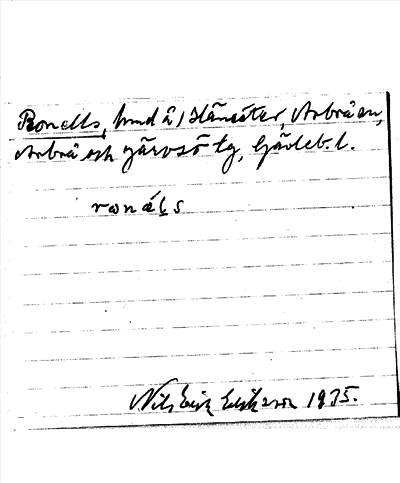 Ronells, hmd å, Hänsäter, Arbråan,
Arbrå och Järvsö tg, Gävleb. l.
ronäls
Nils Erik Eriksson 1935.